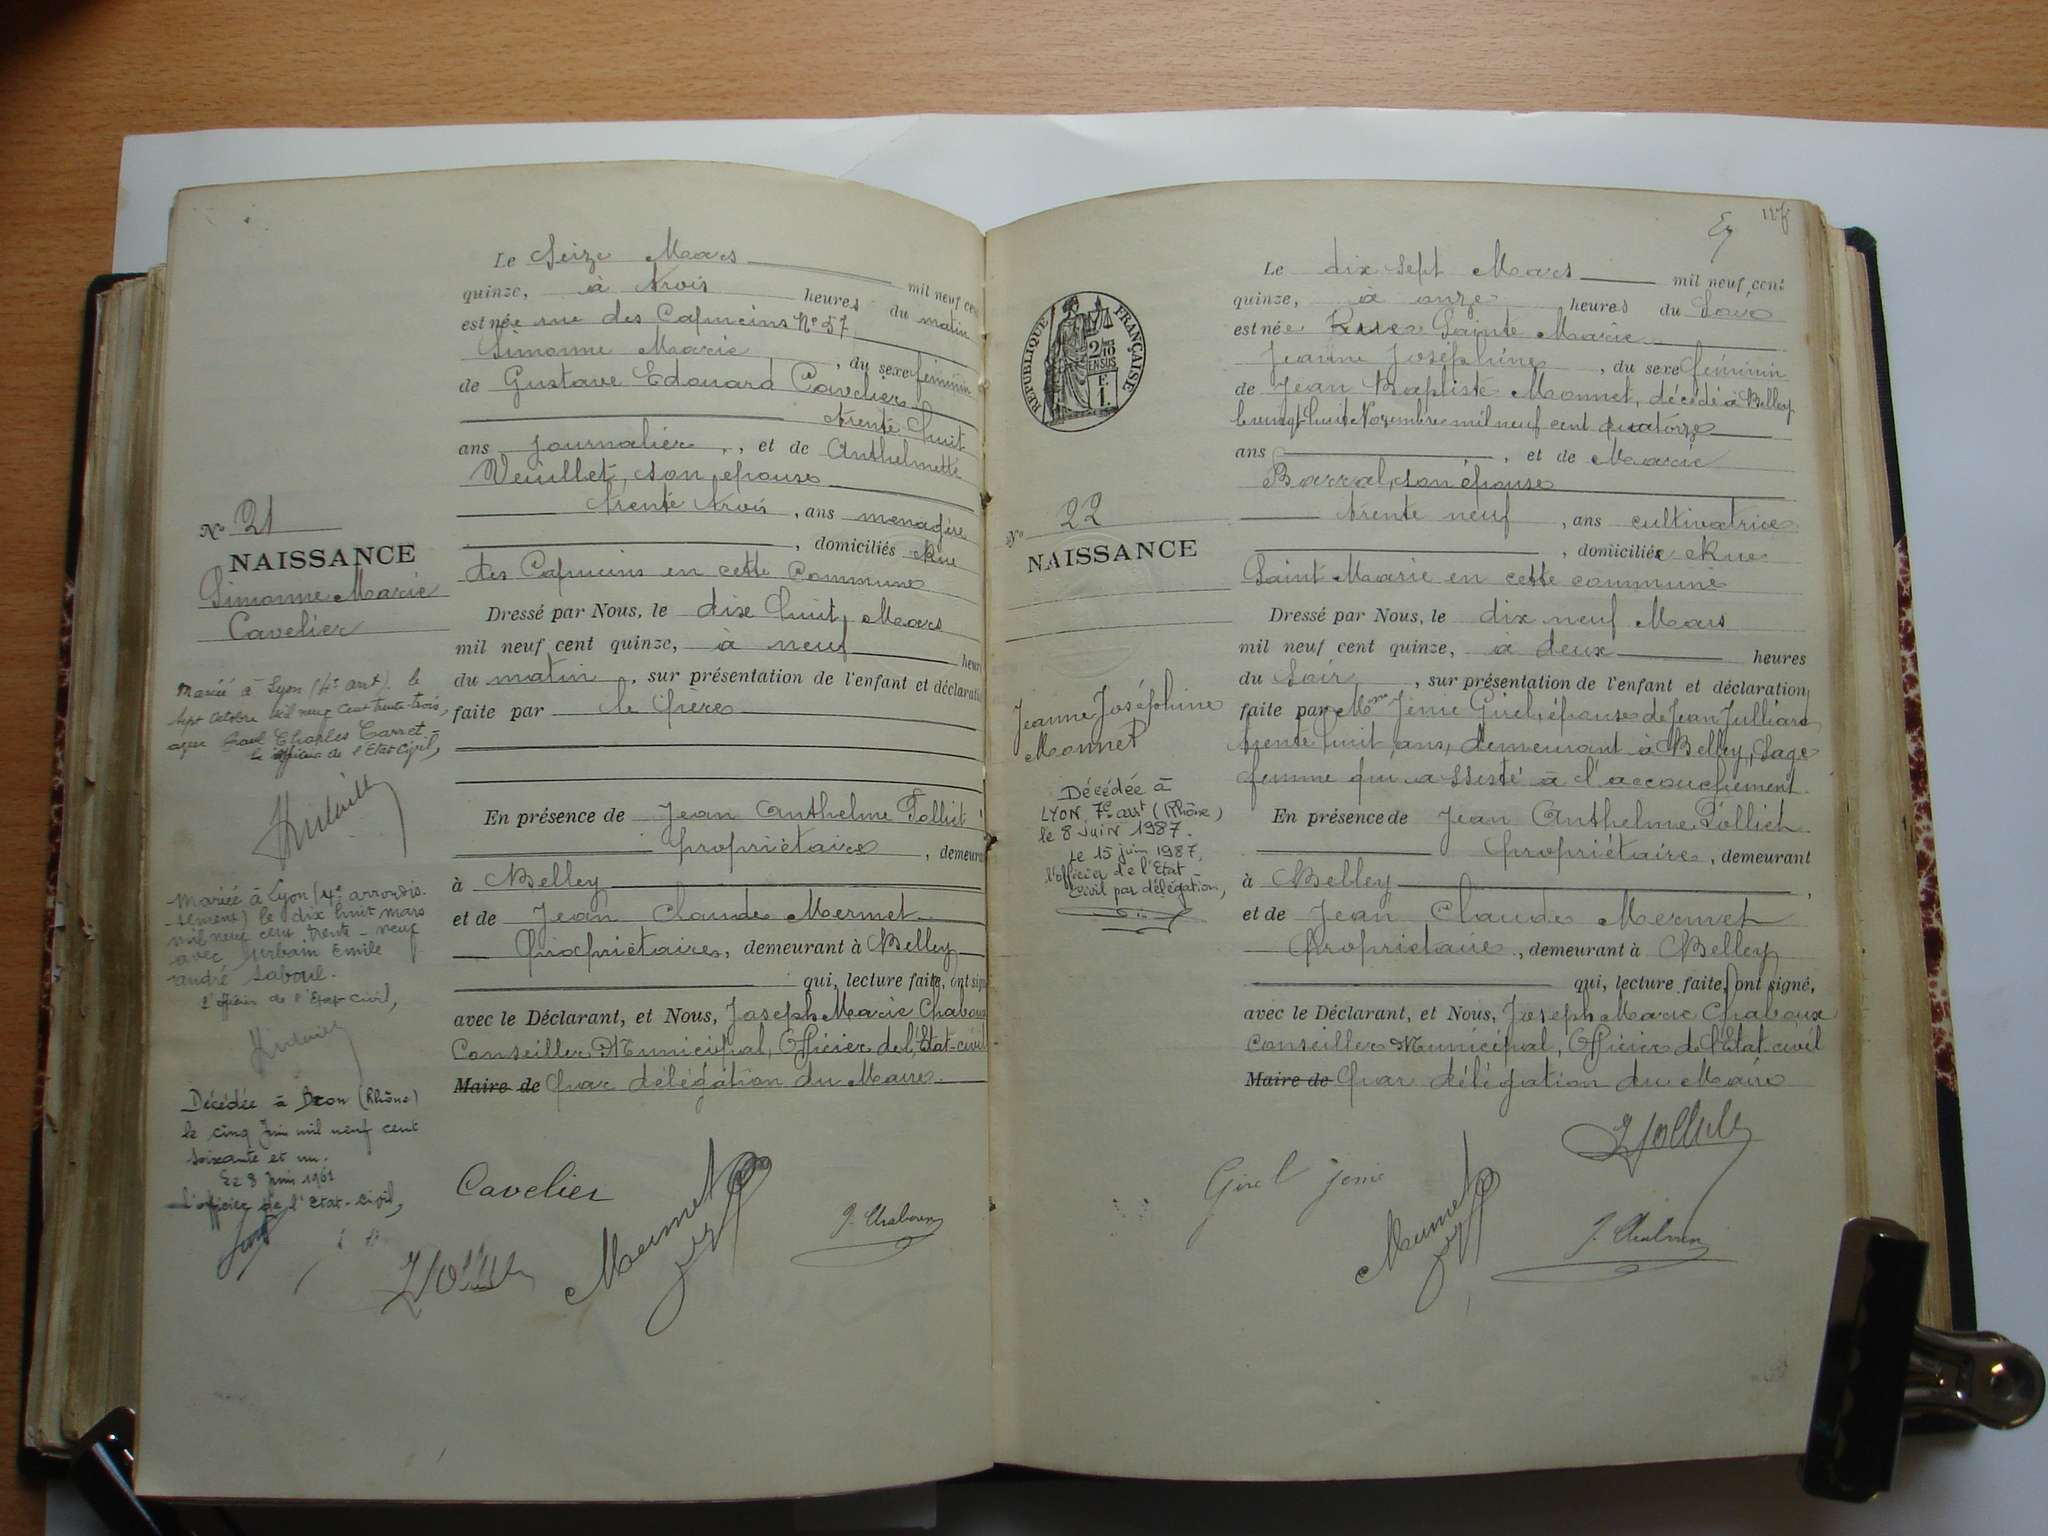 Le Seize Mars mil neuf cent
quinze, à trois heures du matin
est née rue des Capucins N° 57
Simonne Marie, du sexe féminin
de Gustave Edouard Cavelier
trente huit
ans journalier, et de Anthelmette
Veuillet, son épouse
trente trois, ans menagère
, domiciliés Rue
des Capucins en cette Commune
Dressé par Nous, le dix huit Mars
mil neuf cent quinze, à neuf heures
du matin, sur présentation de l'enfant et déclaration
faite par le Père
En présence de Jean Anthelme Pollict
Propriétaire, demeurant
à Belley
et de Jean Claude Mermet
Propriétaire, demeurant à Belley
qui, lecture faite, ont signé
avec le Déclarant, et Nous, Joseph Marie Chaboux
Conseiller Municipal, Officier de l'Etat-civil
Maire de Par délégation du Maire.
Cavelier
Mermet
J. Chaboux
N° 21
NAISSANCE
Simonne Marie
Cavelier
Mariée à Lyon (4e art). le
sept Octobre mil neuf Cent trente-trois,
avec Charles Carret.
le officier de l'Etat Civil,
Mariée à Lyon (4e arrondis-
-sement) le dix huit mars
mil neuf cent trente-neuf
avec Urbain Emile
André Saboul.
l'officier de l'Etat-Civil,
Décédée à Bron (Rhône)
le cinq Juin mil neuf cent
soixante et un.
Le 8 Juin 1961
l'officier de l'Etat-Civil,
Le dix sept Mars mil neuf cent
quinze, à onze heures du Soir
est née Rue Sainte Marie
Jeanne Joséphine, du sexe féminin
de Jean Baptiste Monnet, décédé à Belley
le vingt huit Novembre mil neuf cent quatorze
ans , et de Marie
Barral, son épouse
trente neuf, ans cultivatrice
, domiciliée Rue
Saint Marie en cette commune
Dressé par Nous, le dix neuf Mars
mil neuf cent quinze, à deux heures
du Soir, sur présentation de l'enfant et déclaration
faite par Mme Jenie Girel, épouse de Jean Julliard
trente huit ans, demeurant à Belley, Sage
femme qui a assisté à l'accouchement.
En présence de Jean Anthelme Pollict
Propriétaire, demeurant
à Belley,
et de Jean Claude Mermet
Propriétaire, demeurant à Belley
qui, lecture faite, ont signé,
avec le Déclarant, et Nous, Joseph Marie Chaboux
Conseiller Municipal, Officier de l'Etat-civil
Maire de Par délégation du Maire
Girel Jenie
Mermet
J. Chaboux
RÉPUBLIQUE FRANÇAISE
2/10
EN SUS
E
1.
N° 22
NAISSANCE
Jeanne Joséphine
Monnet
Décédée à
LYON, 7e arrt (Rhône)
le 8 Juin 1987.
Le 15 juin 1987,
l'officier de l'Etat-
Civil par délégation,